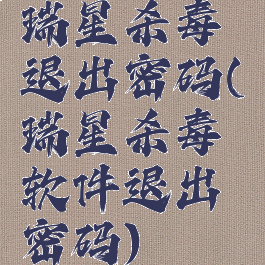 瑞星杀毒
退出密码(
瑞星杀毒
软件退出
密码)